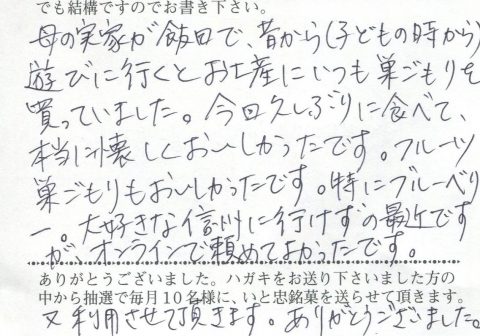 でも結構ですのでお書き下さい。
母の実家が飯田で、昔から(子どもの時から)
遊びに行くとお土産にいつも巣ごもりを
買っていました。今回久しぶりに食べて、
本当に懐しくおいしかったです。フルーツ
巣ごもりもおいしかったです。特にブルーベリ
ー。大好きな信州に行けずの最近です
が、オンラインで頼めてよかったです。
ありがとうございました。ハガキをお送り下さいました方の
中から抽選で毎月10名様に、いと忠銘菓を送らせて頂きます。
又利用させて頂きます。ありがとうございました。